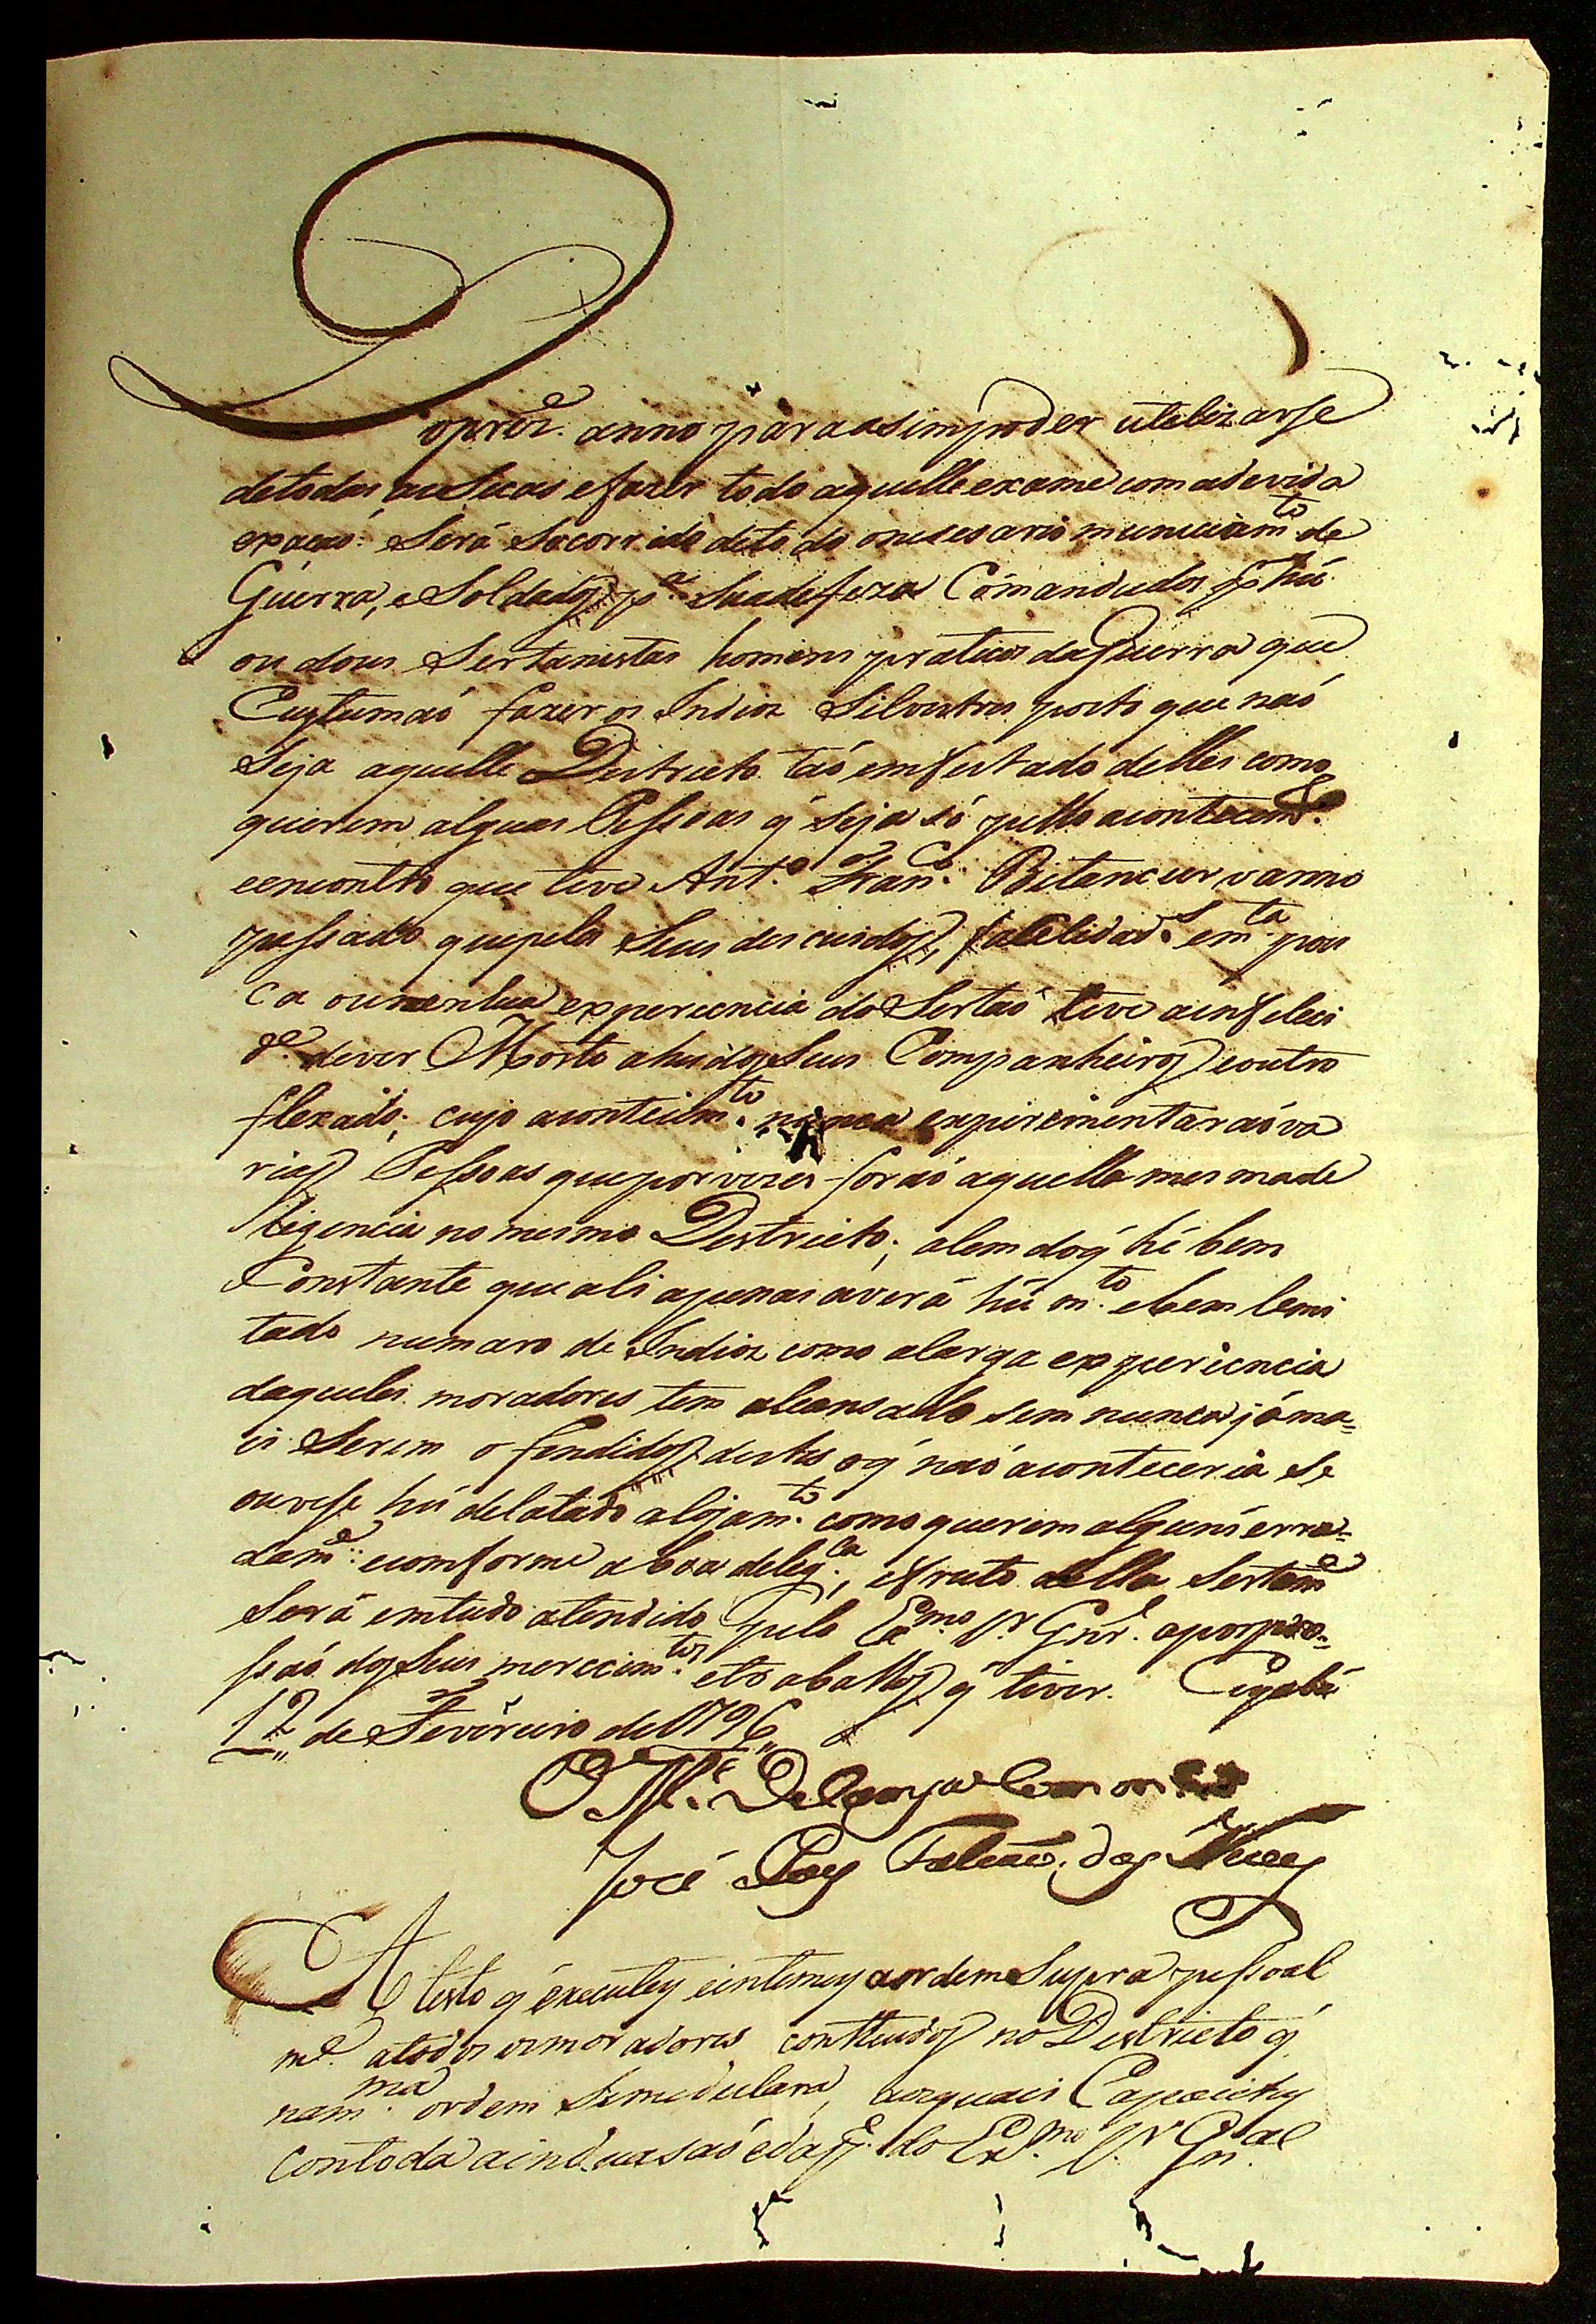 do prez.e anno para asim poder utelizarse
de todas as Secas e fazer todo aquelle exame com a devida
exacaó: Será Socorrido de todo o nesesario municiam.to de
Guerra, e Soldados p.a Sua defeza Comandados p.r hú
ou dous Sertanistas homens praticos da Guerra que
Custumaó fazer os Indios Silvestres posto que naó
Seja aquelle Destricto taó emfestado delles como
querem alguas Pessoas q̃ seja só pello acontecim.to
e encontro que teve Ant.o Fran.co Bitancur o anno
passado que pelos Seus descuidos, fatelidad.s em.ta pou
ca ou nenhua experiencia do Sertaó teve a infelici
d.e de ver Morto a hú dos Seus Companheiros e outro
flexado; cujo acontecim.to nunca expirimentaraó va
rias Pessoas que por vezes foraó aquella mesma de
ligencia no mesmo Destricto; alem do q̃ hé bem
Constante que ali apenas averá hú m.to e bem lemi
tado numaro de Indios como a larga experiencia
daqueles moradores tem alcansado sem nunca jáma-
is Serem ofendidos destes o q̃ naó aconteceria se
ouvese hú delatado alojam.to como querem alguns erra-
dam.e: e comforme a boa deleg.ca, e fruto della Sertam.e
Será em tudo atendido pelo Ex.mo S.r Gnr.l a porpor-
saó dos Seus merecim.tos e trabalhos q̃ tiver. Cuyabá
12 de Fevereiro de 1796
O M.e De Campo
José Paes Falcaó das Neves
Atesto q̃ executey e intimey a ordem Supra pessoal
m.e a todos os moradores conthiudos no Destricto q̃
na m.ma ordem Se me declara, aos quais Capacitey
com toda a
do Ex.mo S.r Gn.al